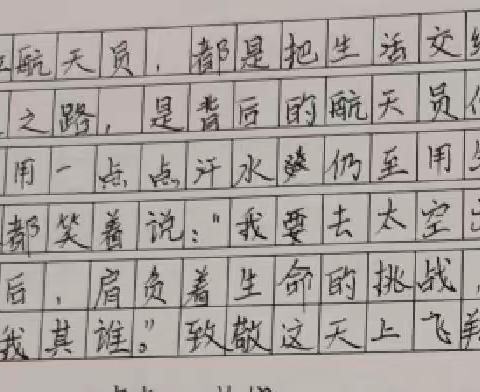 航天员，都是把生活交
之路，是背后的航天员
用一点点汗水仍至用
都笑着说："我要去太空
后，肩负着生命的挑战，
我其谁。"致敬这天上飞翔